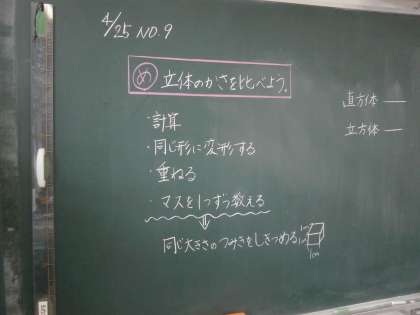 4/25 NO.9
め 立体のかさを比べよう。
・計算
・同じ形に変形する
・重ねる
・マスを1つずつ数える
⇓
同じ大きさのつみきをしきつめる
1cm
1cm
1cm
直方体 —
立方体 —